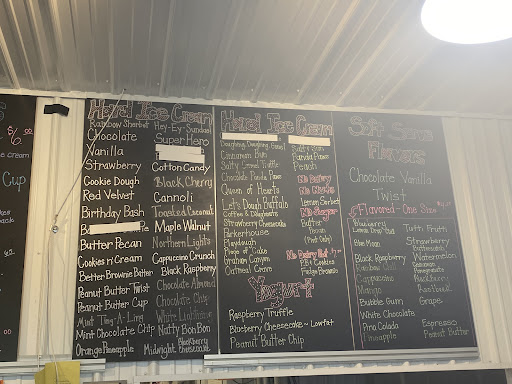 Hard Ice Cream
Rainbow Sherbet
Chocolate
Vanilla
Strawberry
Cookie Dough
Red Velvet
Birthday Bash
Butter Pecan
Cookies n' Cream
Better Brownie Batter
Peanut Butter Twist
Peanut Butter Cup
Mint Ting-A-Ling
Mint Chocolate Chip
Orange Pineapple
Hey-Ey-Sundual
Super Hero
Cotton Candy
Black Cherry
Cannoli
Toasted Coconut
Maple Walnut
Northern Lights
Cappuccino Crunch
Black Raspberry
Chocolate Almond
Chocolate Chip
White Lightning
Natty Bon Bon
Blackberry
Midnight Cheesecake
Hard Ice Cream
Cinnamon Bun
Salty Caramel Truffle
Chocolate Panda Paws
Queen of Hearts
Let's Dough Buffalo
Coffee & Doughnuts
Strawberry Cheesecake
Parkerhouse
Playdough
Piece of Cake
Graham Canyon
Oatmeal Cravo
Panda Paws
Peach
No Dairy
No Nuts
Lemon Sorbet
No Sugar
Butter
Pecan
(Pint Only)
PB & Cookies
Fudge Brownie
Yogurt
Raspberry Truffle
Blueberry Cheesecake - Lowfat
Peanut Butter Chip
Soft Serve
Flavors
Chocolate Vanilla
Twist
Flavored-One Size
Blueberry
Lemon Drop
Blue Moon
Black Raspberry
Cappuccino
Mango
Bubble Gum
White Chocolate
Pina Colada
Pineapple
Tutti Frutti
Strawberry
Butterscotch
Watermelon
Pomegranate
Blackberry
Grape
Espresso
Peanut Butter
$6.00
Cream
Cup